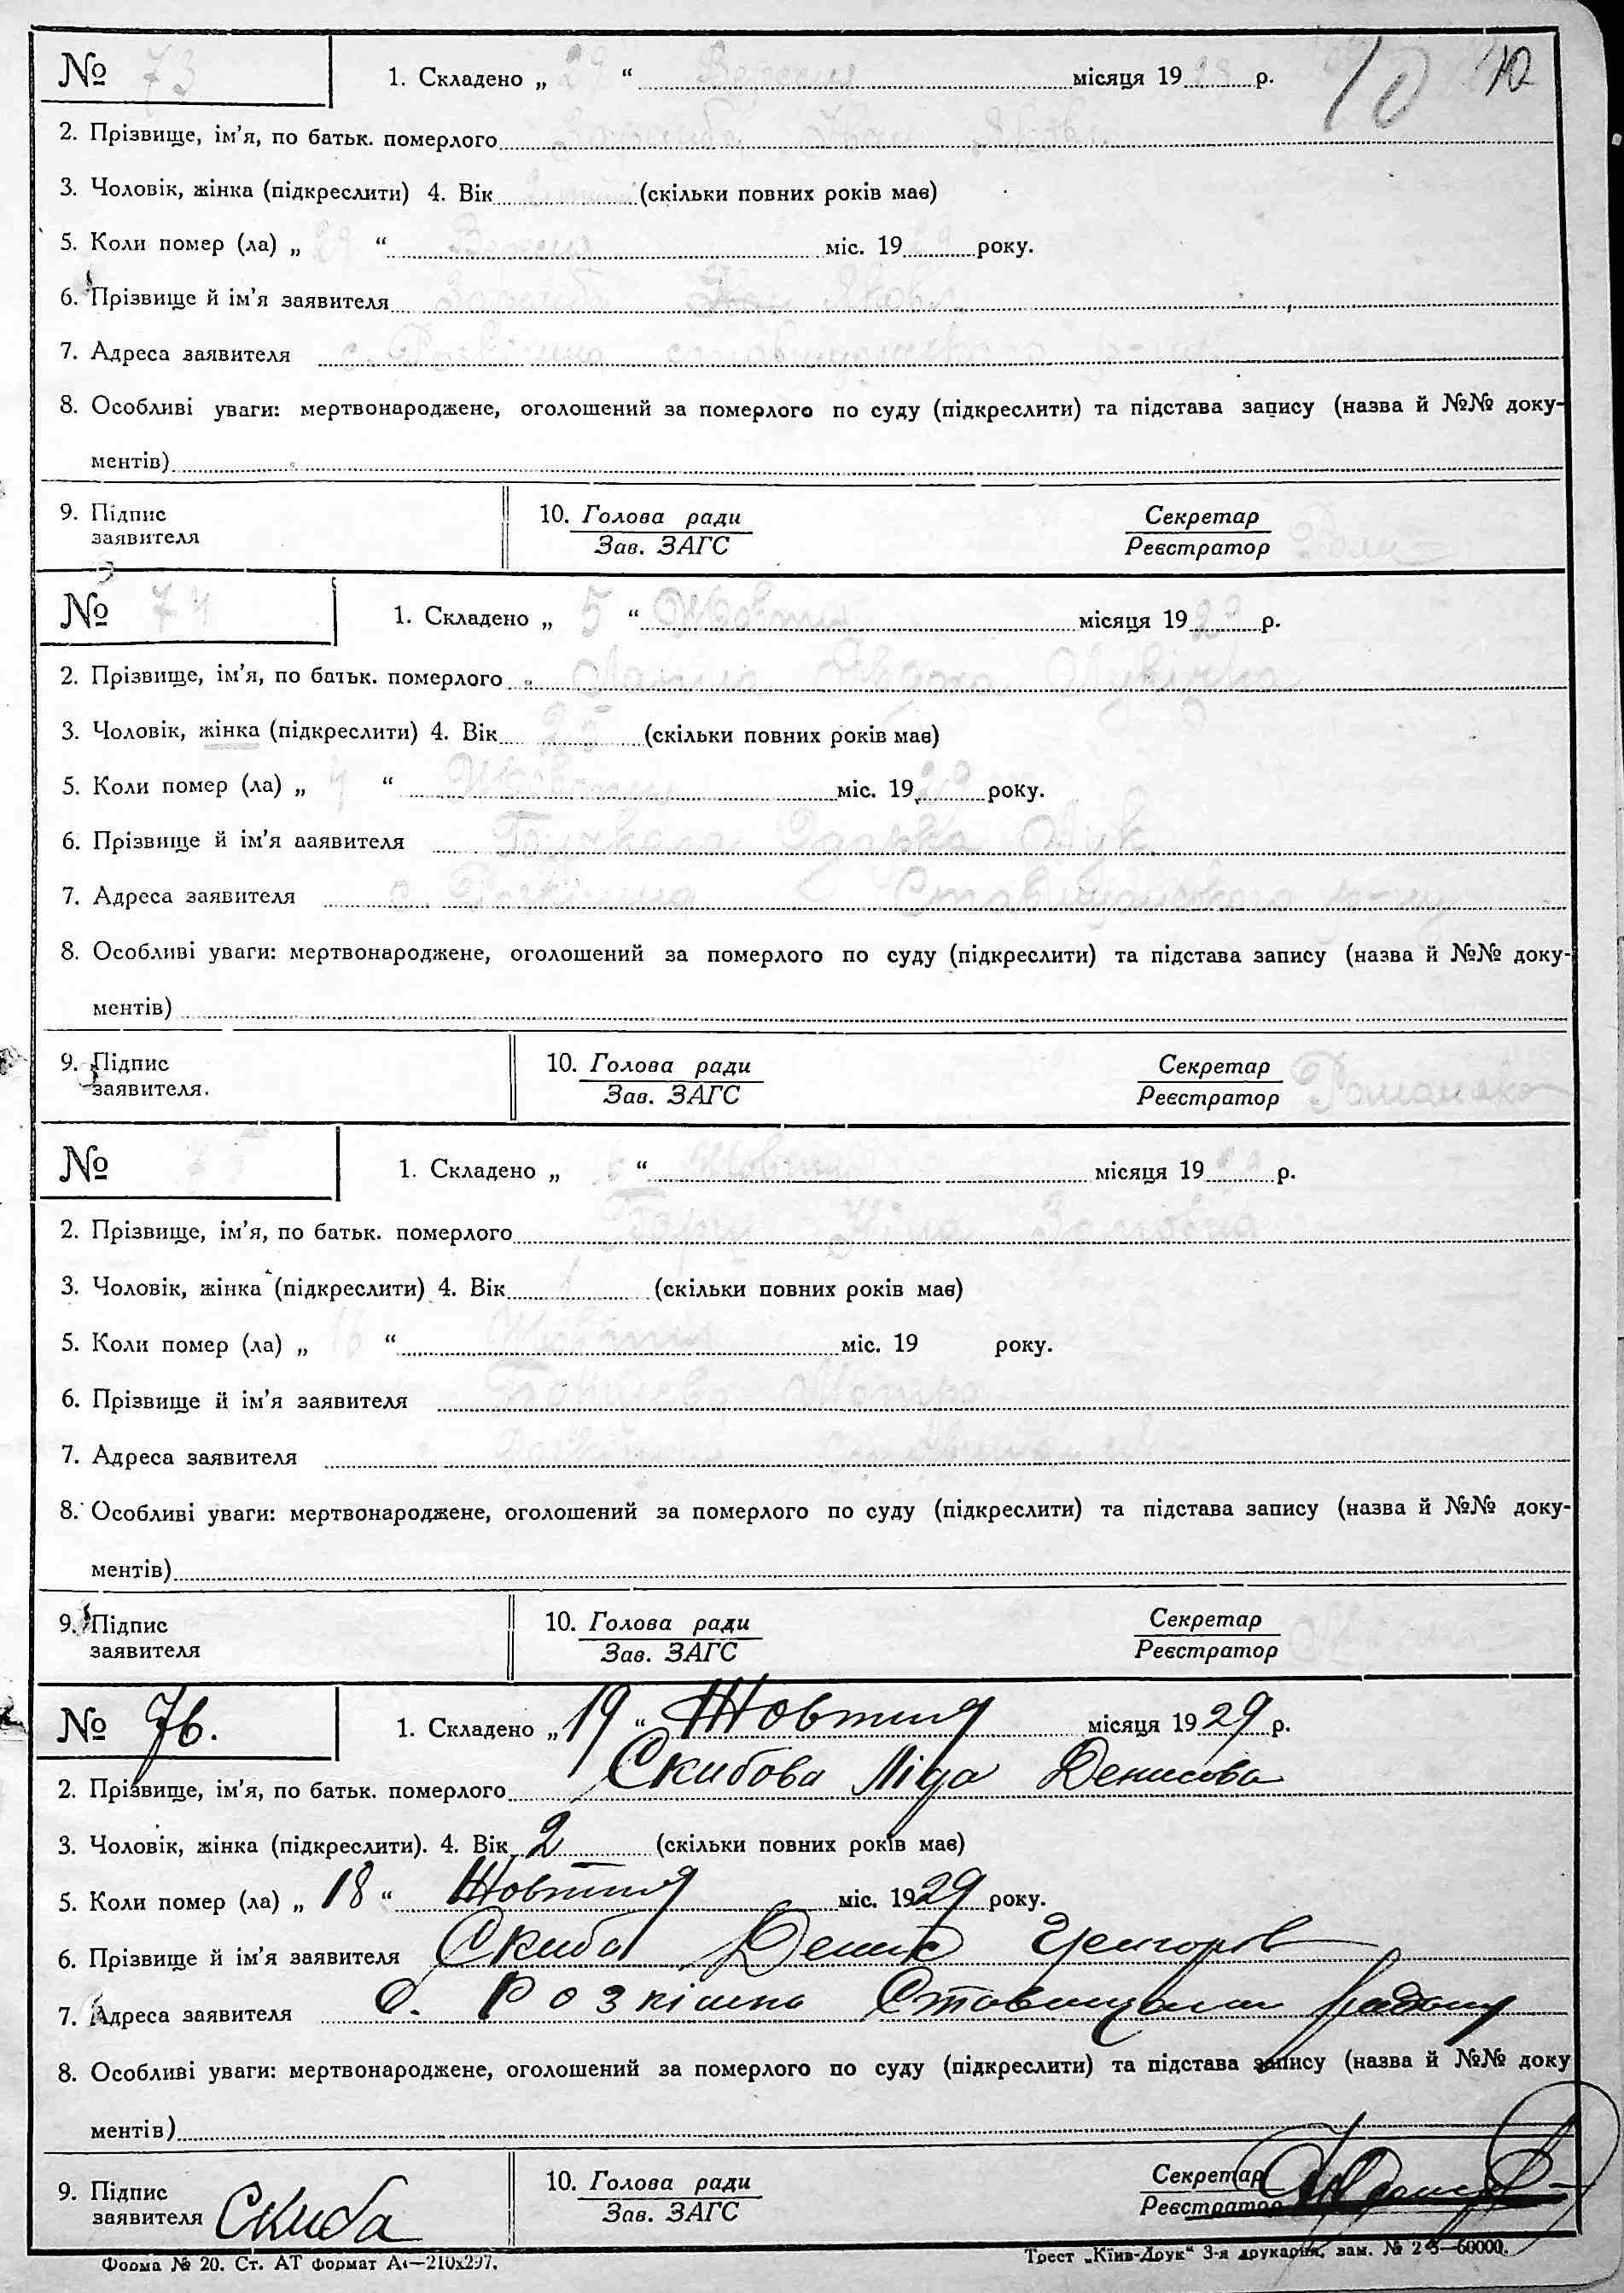 № 73 1. Складено „ 29 “ Вересня місяця 19 29 р. 10
2. Прізвище, ім’я, по батьк. померлого Іван
3. Чоловік, жінка (підкреслити) 4. Вік (скільки повних років має)
5. Коли помер (ла) „ 29 “ Вересня міс. 19 року.
6. Прізвище й ім’я заявителя
7. Адреса заявителя с. Розкішна
8. Особливі уваги: мертвонароджене, оголошений за померлого по суду (підкреслити) та підстава запису (назва й №№ доку-
ментів)
9. Підпис заявителя 10. Голова ради Зав. ЗАГС Секретар Реєстратор
№ 74 1. Складено „ 5 “ Жовтня місяця 19 29 р.
2. Прізвище, ім’я, по батьк. померлого
3. Чоловік, жінка (підкреслити) 4. Вік 25 (скільки повних років має)
5. Коли помер (ла) „ 4 “ Жовтня міс. 19 29 року.
6. Прізвище й ім’я заявителя Одарка Лук.
7. Адреса заявителя с. Розкішна Ставищанського р-ну
8. Особливі уваги: мертвонароджене, оголошений за померлого по суду (підкреслити) та підстава запису (назва й №№ доку-
ментів)
9. Підпис заявителя. 10. Голова ради Зав. ЗАГС Секретар Реєстратор
№ 75 1. Складено „ “ Жовтня місяця 19 29 р.
2. Прізвище, ім’я, по батьк. померлого Ніна
3. Чоловік, жінка (підкреслити) 4. Вік 1 (скільки повних років має)
5. Коли помер (ла) „ 16 “ Жовтня міс. 19 року.
6. Прізвище й ім’я заявителя Мотря
7. Адреса заявителя
8. Особливі уваги: мертвонароджене, оголошений за померлого по суду (підкреслити) та підстава запису (назва й №№ доку-
ментів)
9. Підпис заявителя 10. Голова ради Зав. ЗАГС Секретар Реєстратор
№ 76. 1. Складено „ 19 “ Жовтня місяця 19 29 р.
2. Прізвище, ім’я, по батьк. померлого Скибова Ліда Денисова
3. Чоловік, жінка (підкреслити). 4. Вік 2 (скільки повних років має)
5. Коли помер (ла) „ 18 “ Жовтня міс. 19 29 року.
6. Прізвище й ім’я заявителя Скиба Денис Григоров
7. Адреса заявителя с. Розкішна Ставищан району
8. Особливі уваги: мертвонароджене, оголошений за померлого по суду (підкреслити) та підстава запису (назва й №№ доку
ментів)
9. Підпис заявителя Скиба 10. Голова ради Зав. ЗАГС Секретар Реєстратор
Форма № 20. Ст. АТ формат А4—210х297. Трест „Київ-Друк“ 3-я друкарня, зам. № —60000.